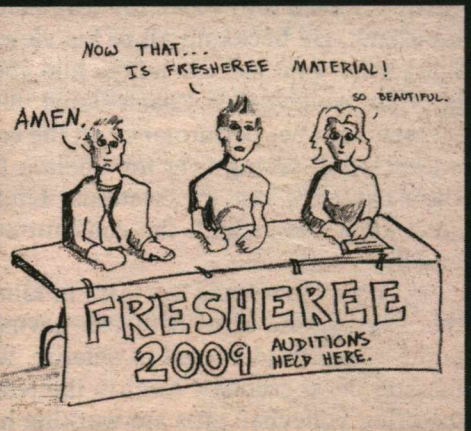 NOW THAT...
IS FRESHEREE MATERIAL!
SO BEAUTIFUL.
AMEN.
FRESHEREE
2009 AUDITIONS
HELD HERE.